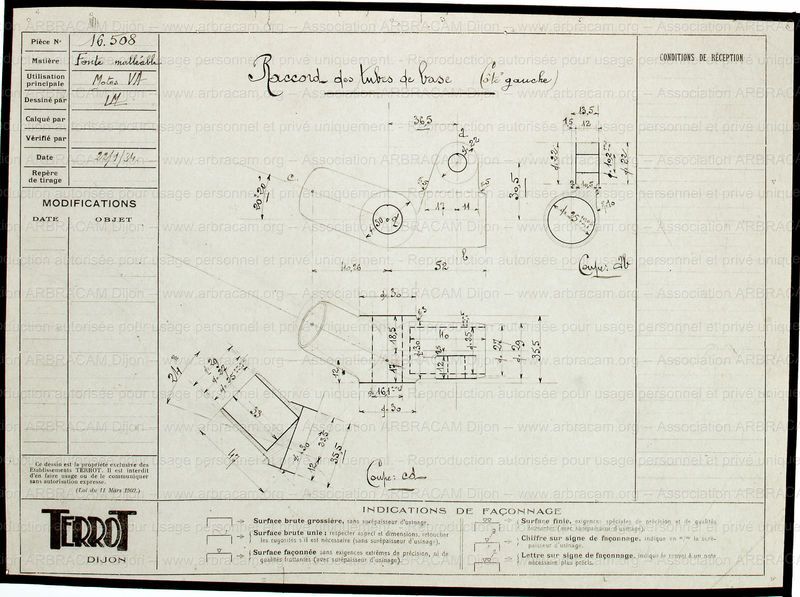 Pièce N° 16.508
Matière Fonte malléable
Utilisation principale Motos VA
Dessiné par LM
Calqué par
Vérifié par
Date 22/1/34
Repère de tirage
MODIFICATIONS
DATE OBJET
Raccord des tubes de base (côté gauche)
CONDITIONS DE RÉCEPTION
36,5
17 11
52
40,26
20°20
30,5
13,5
1,5 12
Coupe: ab
30
18,5
17
12
40
27
29
35,5
30
Coupe cd
47
35,5
Ce dessin est la propriété exclusive des
Etablissements TERROT. Il est interdit
d'en faire usage ou de le communiquer
sans autorisation expresse.
(Loi du 11 Mars 1902.)
TERROT
DIJON
INDICATIONS DE FAÇONNAGE
Surface brute grossière, sans surépaisseur d'usinage.
Surface brute unie: respecter aspect et dimensions, retoucher
les rugosités s'il est nécessaire (sans surépaisseur d'usinage).
Surface façonnée sans exigences extrêmes de précision, ni de
qualités frottantes (avec surépaisseur d'usinage).
Surface finie, exigences spéciales de précision et de qualités
frottantes (avec surépaisseur d'usinage).
Chiffre sur signe de façonnage, indique en m/m la surépaisseur d'usinage.
Lettre sur signe de façonnage, indique le renvoi à une note
nécessaire plus précis.
www.arbracam.org – Association ARBRACAM Dijon – Reproduction autorisée pour usage personnel et privé uniquement.